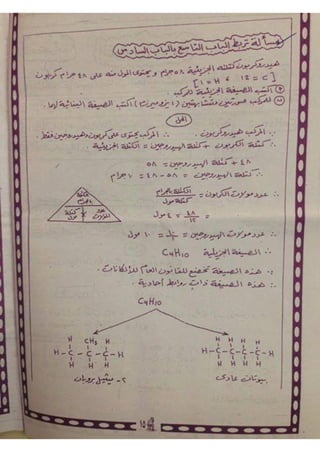 مسألة تربط الباب التاسع بالباب السادس
هيدروكربون كتلته الجزيئية ٥٨ جرام و يحتوى المول منه على ٤٨ جرام كربون
[ 1 = H ، 12 = C ]
اكتب الصيغة الجزيئية للمركب
للمركب صورتين متشابهتين (ايزوميرين) اكتب الصيغة البنائية لهما
الحل
∵ المركب هيدروكربون ∴ المركب يحتوى على كربون وهيدروجين فقط
∴ كتلة الكربون + كتلة الهيدروجين = الكتلة الجزيئية
٤٨ + كتلة الهيدروجين = ٥٨
∴ كتلة الهيدروجين = ٥٨ - ٤٨ = ١٠ جرام
∴ عدد مولات الكربون = الكتلة بالجرام / كتلة مول
= ٤٨ / ١٢ = ٤ مول
كتلة بالجرام
عدد المولات
كتلة مول
∴ عدد مولات الهيدروجين = ١٠ / ١ = ١٠ مول
∴ الصيغة الجزيئية C4H10
∵ هذه الصيغة تخضع للقانون العام للألكانات
∴ هذه الصيغة ذات روابط أحادية
C4H10
H CH3 H
H - C - C - C - H
H H H
٢- ميثيل بروبان
H H H H
H - C - C - C - C - H
H H H H
بيوتان عادى
١٥